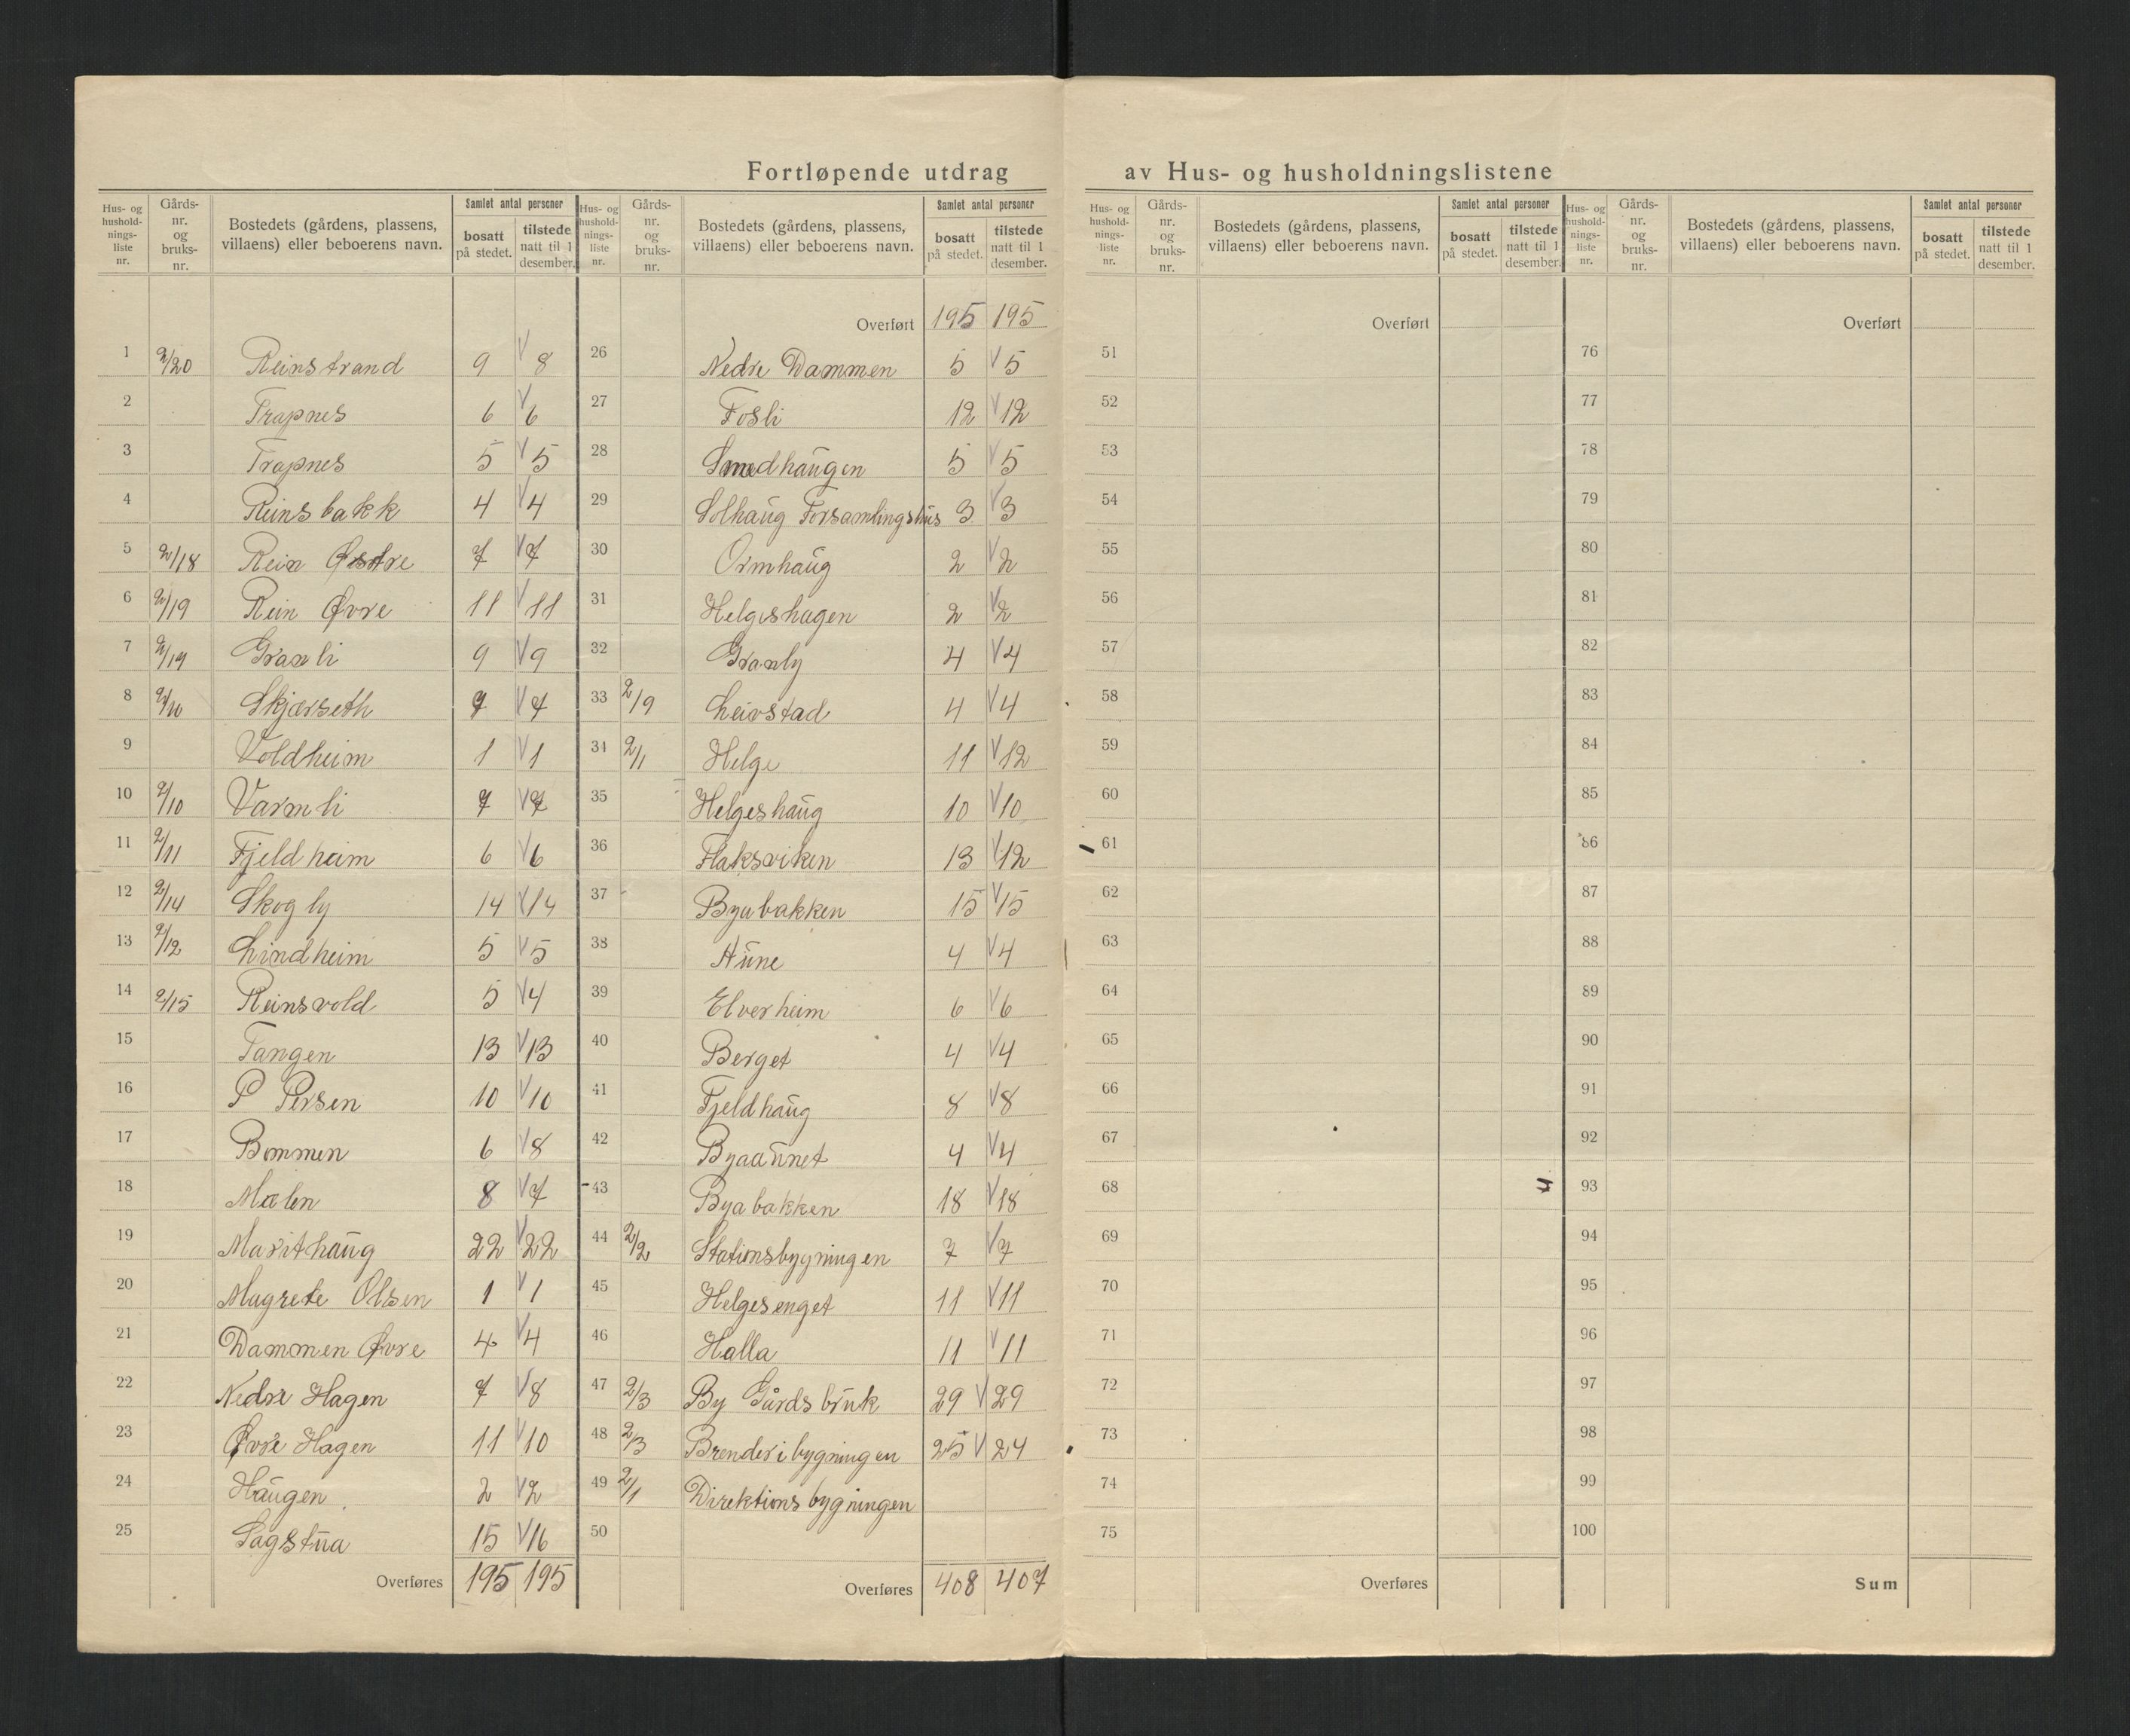 Fortløpende utdrag av Hus- og husholdningslistene
Hus- og husholdnings-liste nr. | Gårds-nr. og bruks-nr. | Bostedets (gårdens, plassens, villaens) eller beboerens navn. | Samlet antal personer | bosatt på stedet. | tilstede natt til 1 desember.
1 2/20 Reinstrand 9 V 8
2 Trapnes 6 V 6
3 Trapnes 5 V 5
4 Reinsbakk 4 V 4
5 2/18 Rein Østre 7 V 7
6 2/19 Rein Øvre 11 V 11
7 2/19 Granli 9 V 9
8 Skjærseth 7 V 7
9 Voldheim 1 V 1
10 2/10 Varmli 7 V 7
11 2/11 Fjeldheim 6 V 6
12 2/14 Skogly 14 V 14
13 2/12 Lindheim 5 V 5
14 2/15 Reinsvold 5 V 4
15 Tangen 13 V 13
16 P Persen 10 V 10
17 Bommen 6 V 8
18 Mælen 8 V 7
19 Marithaug 22 V 22
20 Magrete Olsen 1 V 1
21 Dammen Øvre 4 V 4
22 Nedre Hagen 7 V 8
23 Øvre Hagen 11 V 10
24 Haugen 2 V 2
25 Sagstua 15 V 16
Overføres 195 195
Hus- og husholdnings-liste nr. | Gårds-nr. og bruks-nr. | Bostedets (gårdens, plassens, villaens) eller beboerens navn. | Samlet antal personer | bosatt på stedet. | tilstede natt til 1 desember.
Overført 195 195
26 Nedre Dammen 5 V 5
27 Fosli 12 V 12
28 Smedhaugen 5 V 5
29 Solhaug Forsamlingshus 3 V 3
30 Ormhaug 2 V 2
31 Helgeshagen 2 V 2
32 Granly 4 V 4
33 2/9 Leirstad 4 V 4
34 2/1 Helge 11 V 12
35 Helgeshaug 10 V 10
36 Flaksviken 13 V 12
37 Byabakken 15 V 15
38 Aune 4 V 4
39 Elverheim 6 V 6
40 Berget 4 V 4
41 Fjeldhaug 8 V 8
42 Byaaunet 4 V 4
43 Byabakken 18 V 18
44 2/2 Stationsbygningen 7 V 7
45 Helgesenget 11 V 11
46 Halla 11 V 11
47 2/3 By Gårdsbruk 29 V 29
48 2/3 Brenderibygningen 25 V 24
49 2/1 Direktionsbygningen
50
Overføres 408 407
Hus- og husholdnings-liste nr. | Gårds-nr. og bruks-nr. | Bostedets (gårdens, plassens, villaens) eller beboerens navn. | Samlet antal personer | bosatt på stedet. | tilstede natt til 1 desember.
Overført
51
52
53
54
55
56
57
58
59
60
61
62
63
64
65
66
67
68
69
70
71
72
73
74
75
Overføres
Hus- og husholdnings-liste nr. | Gårds-nr. og bruks-nr. | Bostedets (gårdens, plassens, villaens) eller beboerens navn. | Samlet antal personer | bosatt på stedet. | tilstede natt til 1 desember.
Overført
76
77
78
79
80
81
82
83
84
85
86
87
88
89
90
91
92
93
94
95
96
97
98
99
100
Sum